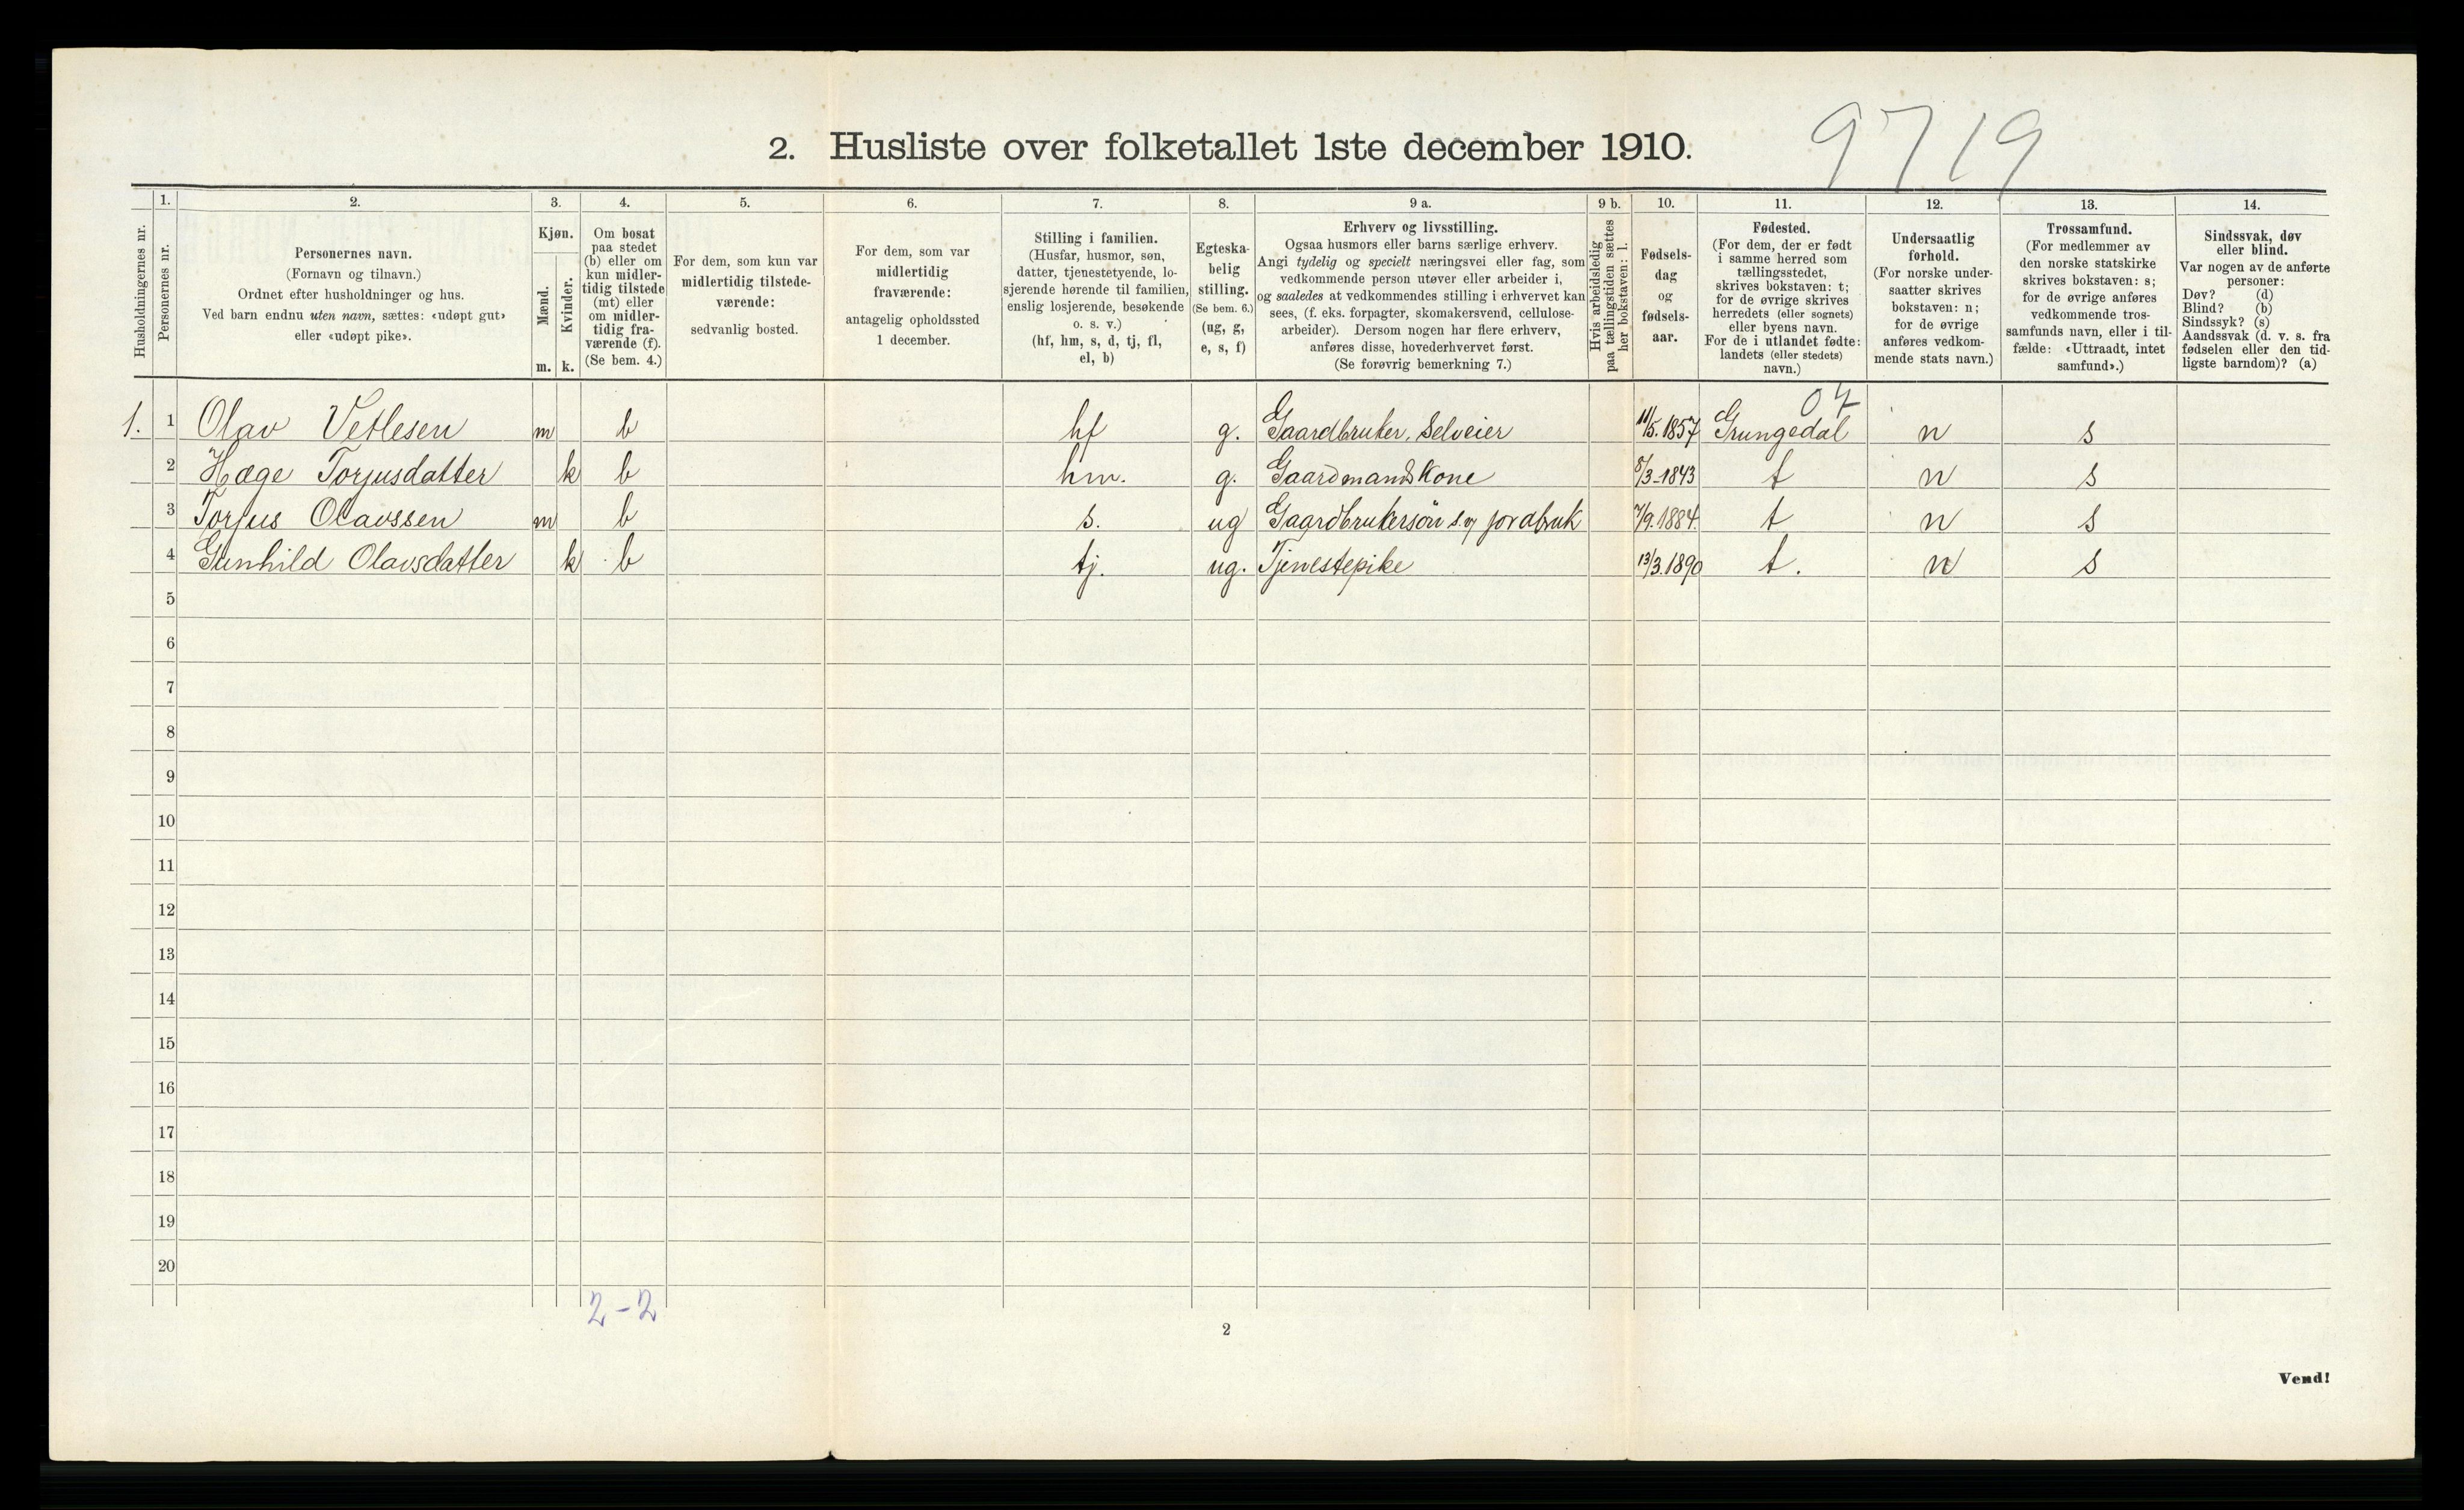 9719
2. Husliste over folketallet 1ste december 1910.
Husholdningernes nr.
1.
Personernes nr.
2.
Personernes navn.
(Fornavn og tilnavn.)
Ordnet efter husholdninger og hus.
Ved barn endnu uten navn, sættes: «udøpt gut»
eller «udøpt pike».
3.
Kjøn.
Mænd.
m.
Kvinder.
k.
4.
Om bosat
paa stedet
(b) eller om
kun midler-
tidig tilstede
(mt) eller
om midler-
tidig fra-
værende (f).
(Se bem. 4.)
5.
For dem, som kun var
midlertidig tilstede-
værende:
sedvanlig bosted.
6.
For dem, som var
midlertidig
fraværende:
antagelig opholdssted
1 december.
7.
Stilling i familien.
(Husfar, husmor, søn,
datter, tjenestetyende, lo-
sjerende hørende til familien,
enslig losjerende, besøkende
o. s. v.)
(hf, hm, s, d, tj, fl,
el, b)
8.
Egteska-
belig
stilling.
(Se bem. 6.)
(ug, g,
e, s, f)
9 a.
Erhverv og livsstilling.
Ogsaa husmors eller barns særlige erhverv.
Angi tydelig og specielt næringsvei eller fag, som
vedkommende person utøver eller arbeider i,
og saaledes at vedkommendes stilling i erhvervet kan
sees, (f. eks. forpagter, skomakersvend, cellulose-
arbeider). Dersom nogen har flere erhverv,
anføres disse, hovederhvervet først.
(Se forøvrig bemerkning 7.)
9 b.
Hvis arbeidsledig
paa tællingstiden sættes
her bokstaven: l.
10.
Fødsels-
dag
og
fødsels-
aar.
11.
Fødested.
(For dem, der er født
i samme herred som
tællingsstedet,
skrives bokstaven: t;
for de øvrige skrives
herredets (eller sognets)
eller byens navn.
For de i utlandet fødte:
landets (eller stedets)
navn.)
12.
Undersaatlig
forhold.
(For norske under-
saatter skrives
bokstaven: n;
for de øvrige
anføres vedkom-
mende stats navn.)
13.
Trossamfund.
(For medlemmer av
den norske statskirke
skrives bokstaven: s;
for de øvrige anføres
vedkommende tros-
samfunds navn, eller i til-
fælde: «Uttraadt, intet
samfund».)
14.
Sindssvak, døv
eller blind.
Var nogen av de anførte
personer:
Døv? (d)
Blind? (b)
Sindssyk? (s)
Aandssvak (d. v. s. fra
fødselen eller den tid-
ligste barndom)? (a)
07
1. 1 Olav Vetlesen m b hf g. Gaardbruker, Selveier 11/5.1857 Grungedal n s
2 Hæge Torjusdatter k b hm. g. Gaardmandskone 8/3-1843 t n s
3 Torjus Olavssen m b s. ug Gaardbrukersön s. og jordbruk 7/9.1884. t n s
4 Gunhild Olavsdatter k b tj. ug. Tjenestepike 13/3.1890 t. n s
5
6
7
8
9
10
11
12
13
14
15
16
17
18
19
20
2-2
2
Vend!